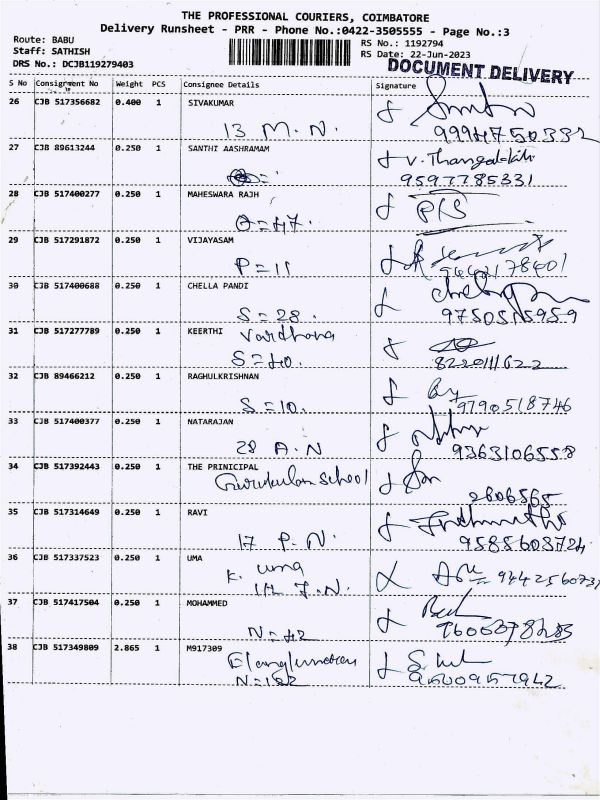 THE PROFESSIONAL COURIERS, COIMBATORE
Delivery Runsheet - PRR - Phone No.:0422-3505555 - Page No.:3
Route: BABU
RS No.: 1192794
Staff: SATHISH
RS Date: 22-Jun-2023
DRS No.: DCJB119279403
DOCUMENT DELIVERY
S No Consignment No Weight PCS Consignee Details Signature
26 CJB 517356682 0.400 1 SIVAKUMAR
13 M.N.
27 CJB 89613244 0.250 1 SANTHI AASHRAMAM
9597785331
28 CJB 517400277 0.250 1 MAHESWARA RAJH
29 CJB 517291872 0.250 1 VIJAYASAM
P=11
30 CJB 517400688 0.250 1 CHELLA PANDI
S=28.
31 CJB 517277789 0.250 1 KEERTHI
Vardhana
S=40.
32 CJB 89466212 0.250 1 RAGHULKRISHNAN
S=10. 9790518746
33 CJB 517400377 0.250 1 NATARAJAN
28 A.N 9363106558
34 CJB 517392443 0.250 1 THE PRINICIPAL
School
2606565
35 CJB 517314649 0.250 1 RAVI
17 P.N. 9585608724
36 CJB 517337523 0.250 1 UMA
K. uma
37 CJB 517417504 0.250 1 MOHAMMED
N=42
38 CJB 517349809 2.865 1 M917309